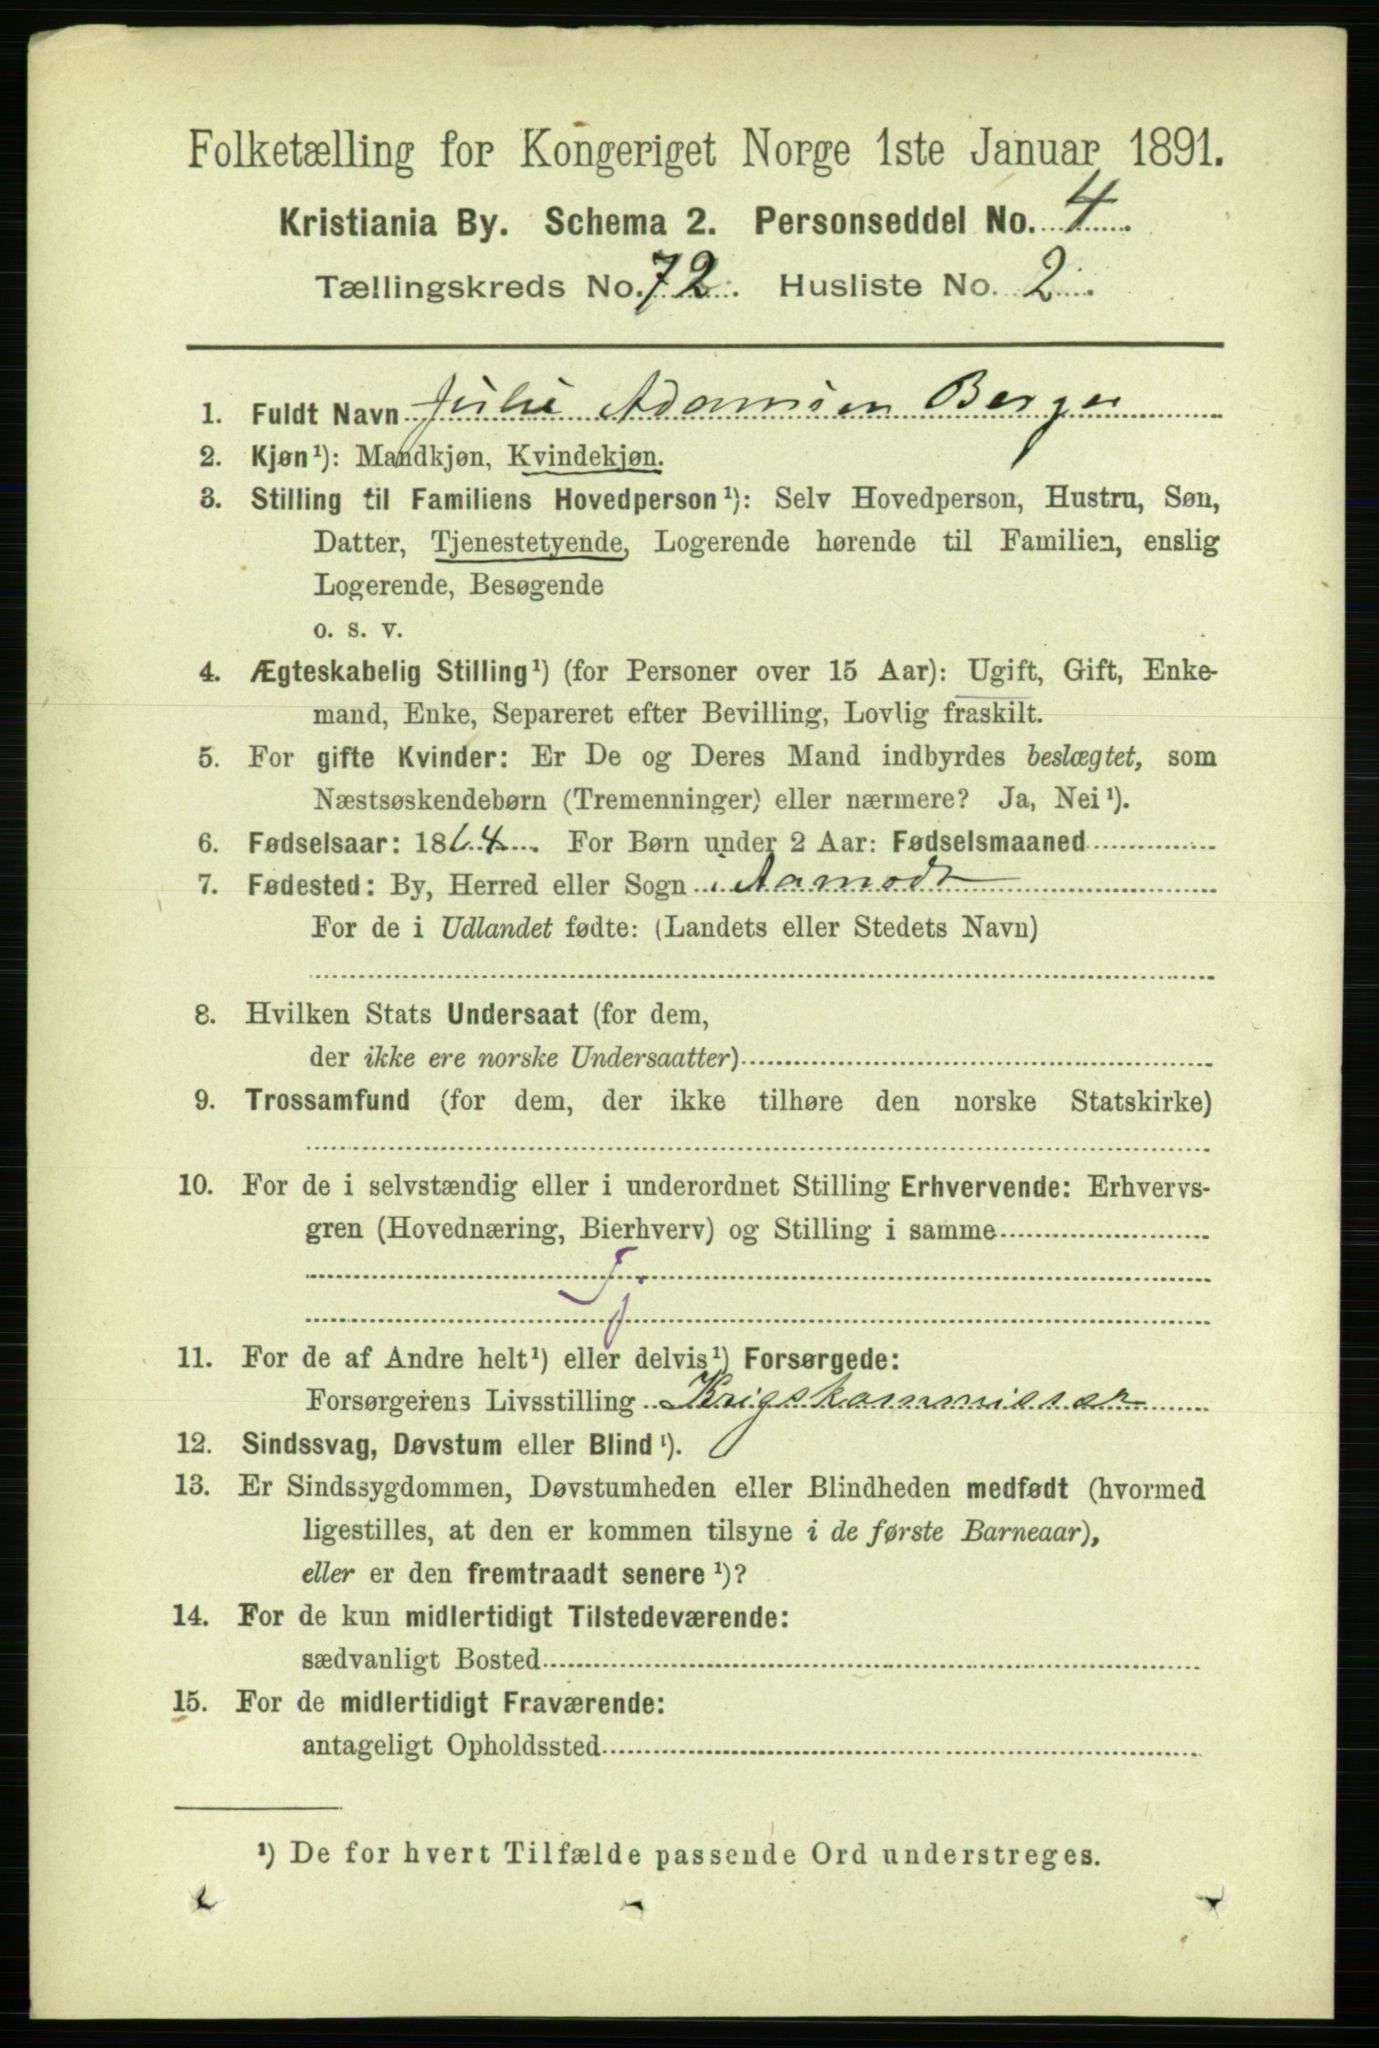 Folketælling for Kongeriget Norge 1ste Januar 1891.
Kristiania By. Schema 2. Personseddel No. 4
Tællingskreds No. 72. Husliste No. 2.
1. Fuldt Navn Julie Adamsen Berger
2. Kjøn¹): Mandkjøn, Kvindekjøn.
3. Stilling til Familiens Hovedperson¹): Selv Hovedperson, Hustru, Søn,
Datter, Tjenestetyende, Logerende hørende til Familien, enslig
Logerende, Besøgende
o. s. v.
4. Ægteskabelig Stilling¹) (for Personer over 15 Aar): Ugift, Gift, Enke-
mand, Enke, Separeret efter Bevilling, Lovlig fraskilt.
5. For gifte Kvinder: Er De og Deres Mand indbyrdes beslægtet, som
Næstsøskendebørn (Tremenninger) eller nærmere? Ja, Nei¹).
6. Fødselsaar: 1864. For Børn under 2 Aar: Fødselsmaaned
7. Fødested: By, Herred eller Sogn Aamodt
For de i Udlandet fødte: (Landets eller Stedets Navn)
8. Hvilken Stats Undersaat (for dem,
der ikke ere norske Undersaatter)
9. Trossamfund (for dem, der ikke tilhøre den norske Statskirke)
10. For de i selvstændig eller i underordnet Stilling Erhvervende: Erhvervs-
gren (Hovednæring, Bierhverv) og Stilling i samme
Tj.
11. For de af Andre helt¹) eller delvis¹) Forsørgede:
Forsørgerens Livsstilling Krigskommissær
12. Sindssvag, Døvstum eller Blind¹).
13. Er Sindssygdommen, Døvstumheden eller Blindheden medfødt (hvormed
ligestilles, at den er kommen tilsyne i de første Barneaar),
eller er den fremtraadt senere¹)?
14. For de kun midlertidigt Tilstedeværende:
sædvanligt Bosted
15. For de midlertidigt Fraværende:
antageligt Opholdssted
¹) De for hvert Tilfælde passende Ord understreges.